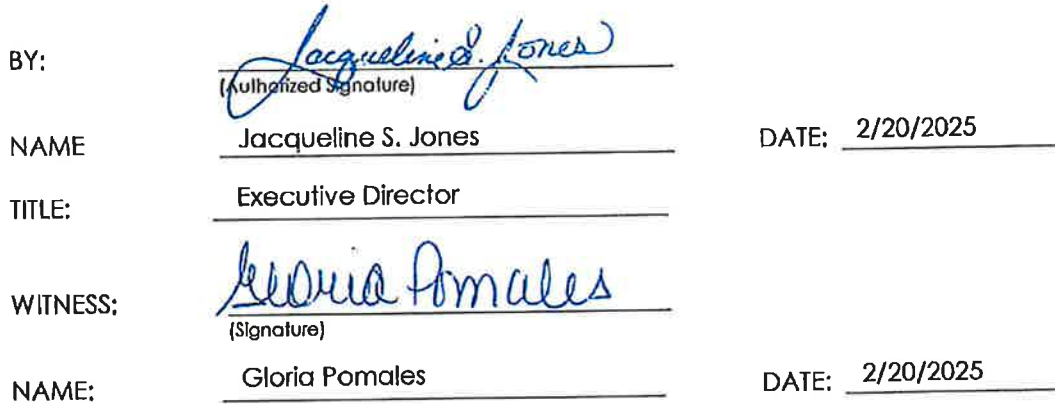 BY: Jacqueline S. Jones
(Authorized Signature)
NAME Jacqueline S. Jones DATE: 2/20/2025
TITLE: Executive Director
WITNESS: Gloria Pomales
(Signature)
NAME: Gloria Pomales DATE: 2/20/2025